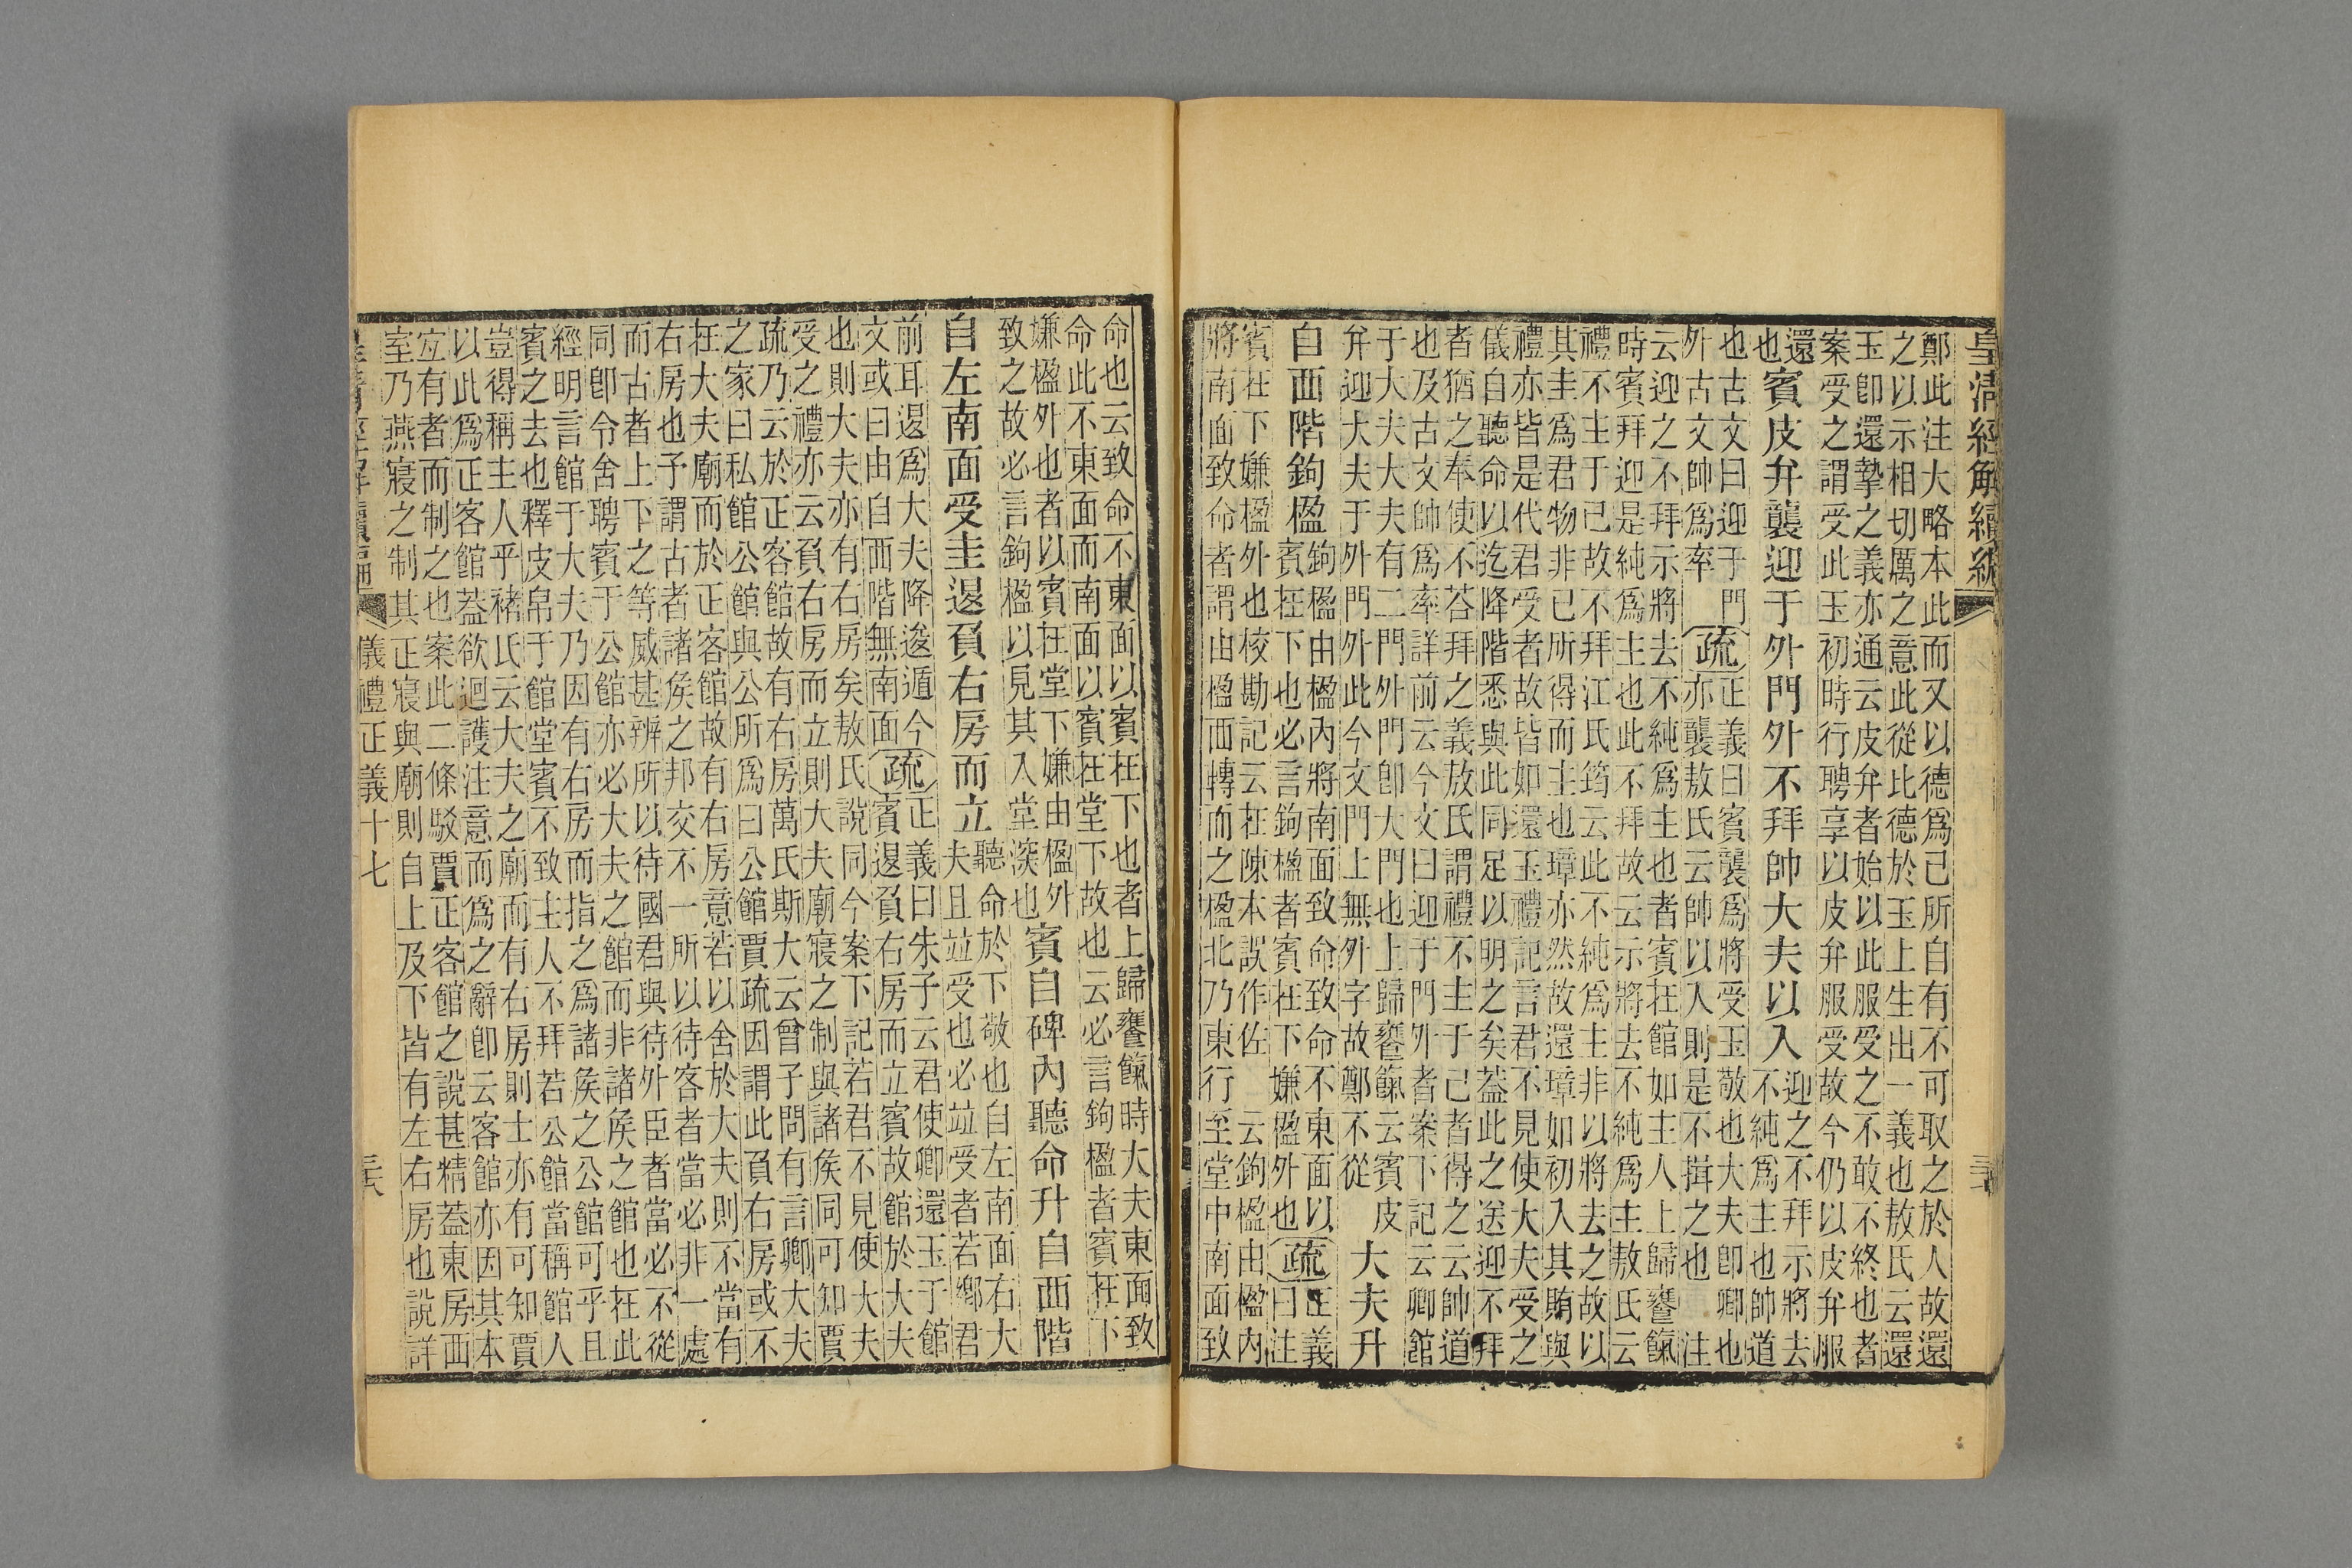 皇清經解續編
鄭此注大略本此而又以德爲已所自有不可取之於人故還
之以示相切厲之意此從此德於玉上生出一義也敖氏云還
玉卽還摯之義亦通云皮弁者始以此服受之不敢不終也者
案受之謂受此玉初時行聘享以皮弁服受故今仍以皮弁服
還
也
賓皮弁襲迎于外門外不拜帥大夫以入
迎之不拜示將去
不純爲主也帥道
也古文曰迎于門
外古文帥爲率
疏
正義曰賓襲爲將受玉敬也大夫卽卿也
亦襲敖氏云帥以入則是不揖之也 注
云迎之不拜示將去不純爲主也者賓在館如主人上歸饔餼
時賓拜迎是純爲主也此不拜故云示將去不純爲主敖氏云
禮不主于已故不拜江氏筠云此不純爲主非以將去之故以
其圭爲君物非已所得而主也璋亦然故還璋如初入其賄與
禮亦皆是代君受者故皆如還玉禮記言君不見使大夫受之
儀自聽命以迄降階悉與此同足以明之矣葢此之送迎不拜
者猶之奉使不荅拜之義敖氏謂禮不主于己者得之云帥道
也及古文帥爲率詳前云今文曰迎于門外者案下記云卿館
于大夫大夫有二門外門卽大門也上歸饔餼云賓皮
弁迎大夫于外門外此今文門上無外字故鄭不從
大夫升
自西階鉤楹
鉤楹由楹內將南面致命致命不東面以
賓在下也必言鉤楹者賓在下嫌楹外也
疏
正義
曰注
云鉤楹由楹內
將南面致命者謂由楹西轉而之楹北乃東行至堂中南面致
賓在下嫌楹外也校勘記云在陳本誤作佐
命也云致命不東面以賓在下也者上歸饔餼時大夫東面致
命此不東面而南面以賓在堂下故也云必言鉤楹者賓在下
嫌楹外也者以賓在堂下嫌由楹外
致之故必言鉤楹以見其入堂深也
賓自碑內聽命升自西階
自左南面受圭退負右房而立
聽命於下敬也自左南面右大
夫且竝受也必竝受者若鄉君
前耳退爲大夫降逡遁今
文或曰由自西階無南面
疏
正義曰朱子云君使卿還玉于館
賓退負右房而立賓故館於大夫
也則大夫亦有右房矣敖氏說同今案下記若君不見使大夫
受之禮亦云負右房而立則大夫廟寢之制與諸矦同可知賈
疏乃云於正客館故有右房萬氏斯大云曾子問有言卿大夫
之家曰私館公館與公所爲曰公館賈疏因謂此負右房或不
在大夫廟而於正客館故有右房意若以舍於大夫則不當有
右房也予謂古者諸矦之邦交不一所以待客者當必非一處
而古者上下之等威甚辨所以待國君與待外臣者當必不從
同卽令舍聘賓于公館亦必大夫之館而非諸矦之館也在此
經明言館于大夫乃因有右房而指之爲諸矦之公館可乎且
賓之去也釋皮帛于館堂賓不致主人不拜若公館當稱館人
豈得稱主人乎褚氏云大夫之廟而有右房則士亦有可知賈
以此爲正客館葢欲迴護注意而爲之辭卽云客館亦因其本
宜有者而制之也案此二條駁賈正客館之說甚精葢東房西
室乃燕寢之制其正寢與廟則自上及下皆有左右房也說詳
儀禮正義十七